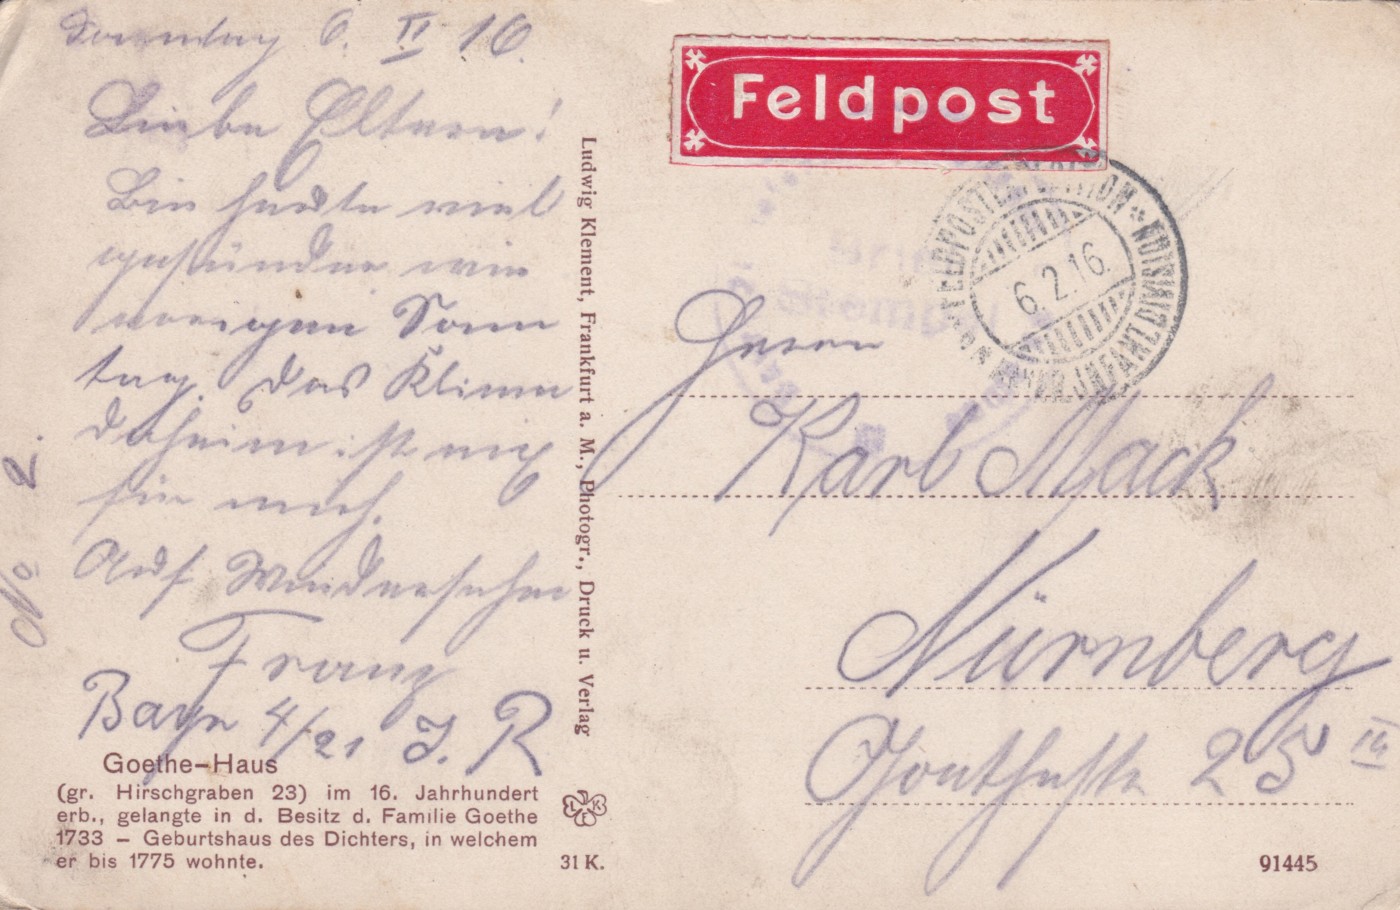 Sonntag 6. II 16.
Liebe Eltern!
Bin heute viel
gesünder wie
vorigen Sonn
tag. Das Klima
daheim ist nix
für mich.
Auf Wiedersehen
Franz
Bayr 4/21 J. R
No 2.
Goethe-Haus
(gr. Hirschgraben 23) im 16. Jahrhundert
erb., gelangte in d. Besitz d. Familie Goethe
1733 – Geburtshaus des Dichters, in welchem
er bis 1775 wohnte.
31 K.
Ludwig Klement, Frankfurt a. M., Photogr., Druck u. Verlag
Feldpost
FELDPOSTEXPEDITION
6.2.16.
INFANT. DIVISION
Herrn
Karl Mack
Nürnberg
25 III
91445